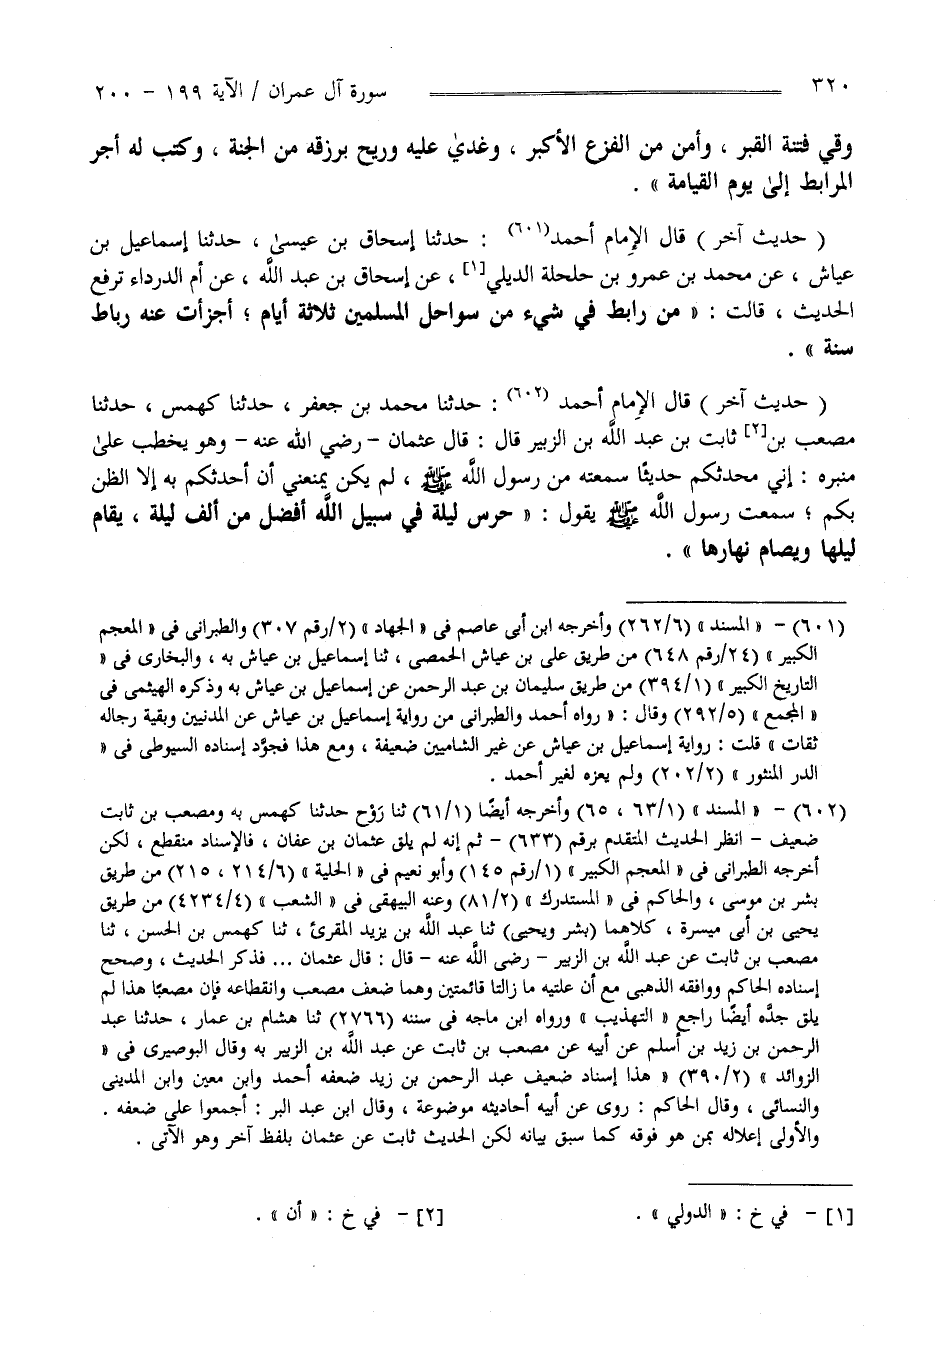 ٣٢٠ سورة آل عمران / الآية ١٩٩ - ٢٠٠
وقي فتنة القبر ، وأمن من الفزع الأكبر ، وغديٰ عليه وريح برزقه من الجنة ، وكتب له أجر
المرابط إلىٰ يوم القيامة » .
( حديث آخر ) قال الإمام أحمد(٦٠١) : حدثنا إسحاق بن عيسىٰ ، حدثنا إسماعيل بن
عياش ، عن محمد بن عمرو بن حلحلة الديلي[١] ، عن إسحاق بن عبد اللَّه ، عن أم الدرداء ترفع
الحديث ، قالت : « من رابط في شيء من سواحل المسلمين ثلاثة أيام ؛ أجزأت عنه رباط
سنة » .
( حديث آخر ) قال الإمام أحمد (٦٠٢) : حدثنا محمد بن جعفر ، حدثنا كهمس ، حدثنا
مصعب بن[٢] ثابت بن عبد اللَّه بن الزبير قال : قال عثمان - رضي الله عنه - وهو يخطب علىٰ
منبره : إني محدثكم حديثًا سمعته من رسول اللَّه ﷺ ، لم يكن يمنعني أن أحدثكم به إلا الظن
بكم ؛ سمعت رسول اللَّه ﷺ يقول : « حرس ليلة في سبيل اللَّه أفضل من ألف ليلة ، يقام
ليلها ويصام نهارها » .
(٦٠١) - « المسند » (٢٦٢/٦) وأخرجه ابن أبى عاصم فى « الجهاد » (٢/رقم ٣٠٧) والطبرانى فى « المعجم
الكبير » (٢٤/رقم ٦٤٨) من طريق على بن عياش الحمصى ، ثنا إسماعيل بن عياش به ، والبخارى فى «
التاريخ الكبير » (٣٩٤/١) من طريق سليمان بن عبد الرحمن عن إسماعيل بن عياش به وذكره الهيثمى فى
« المجمع » (٢٩٢/٥) وقال : « رواه أحمد والطبرانى من رواية إسماعيل بن عياش عن المدنيين وبقية رجاله
ثقات » قلت : رواية إسماعيل بن عياش عن غير الشاميين ضعيفة ، ومع هذا فجوَّد إسناده السيوطى فى «
الدر المنثور » (٢٠٢/٢) ولم يعزه لغير أحمد .
(٦٠٢) - « المسند » (٦٣/١ ، ٦٥) وأخرجه أيضًا (٦١/١) ثنا رَوْح حدثنا كهمس به ومصعب بن ثابت
ضعيف - انظر الحديث المتقدم برقم (٦٣٣) - ثم إنه لم يلق عثمان بن عفان ، فالإسناد منقطع ، لكن
أخرجه الطبرانى فى « المعجم الكبير » (١/رقم ١٤٥) وأبو نعيم فى « الحلية » (٢١٤/٦ ، ٢١٥) من طريق
بشر بن موسى ، والحاكم فى « المستدرك » (٨١/٢) وعنه البيهقى فى « الشعب » (٤٢٣٤/٤) من طريق
يحيى بن أبى ميسرة ، كلاهما (بشر ويحيى) ثنا عبد اللَّه بن يزيد المقرئ ، ثنا كهمس بن الحسن ، ثنا
مصعب بن ثابت عن عبد اللَّه بن الزبير - رضى اللَّه عنه - قال : قال عثمان ... فذكر الحديث ، وصحح
إسناده الحاكم ووافقه الذهبى مع أن علتيه ما زالتا قائمتين وهما ضعف مصعب وانقطاعه فإن مصعبًا هذا لم
يلق جدَّه أيضًا راجع « التهذيب » ورواه ابن ماجه فى سننه (٢٧٦٦) ثنا هشام بن عمار ، حدثنا عبد
الرحمن بن زيد بن أسلم عن أبيه عن مصعب بن ثابت عن عبد اللَّه بن الزبير به وقال البوصيرى فى «
الزوائد » (٣٩٠/٢) « هذا إسناد ضعيف عبد الرحمن بن زيد ضعفه أحمد وابن معين وابن المدينى
والنسائى ، وقال الحاكم : روى عن أبيه أحاديثه موضوعة ، وقال ابن عبد البر : أجمعوا على ضعفه .
والأولى إعلاله بمن هو فوقه كما سبق بيانه لكن الحديث ثابت عن عثمان بلفظ آخر وهو الآتى .
[١] - في خ : « الدولي » . [٢] - في خ : « أن » .